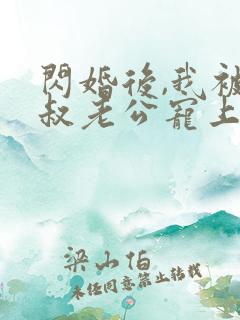 閃婚後,我被
叔老公寵上
梁山伯
未任同意禁止转载